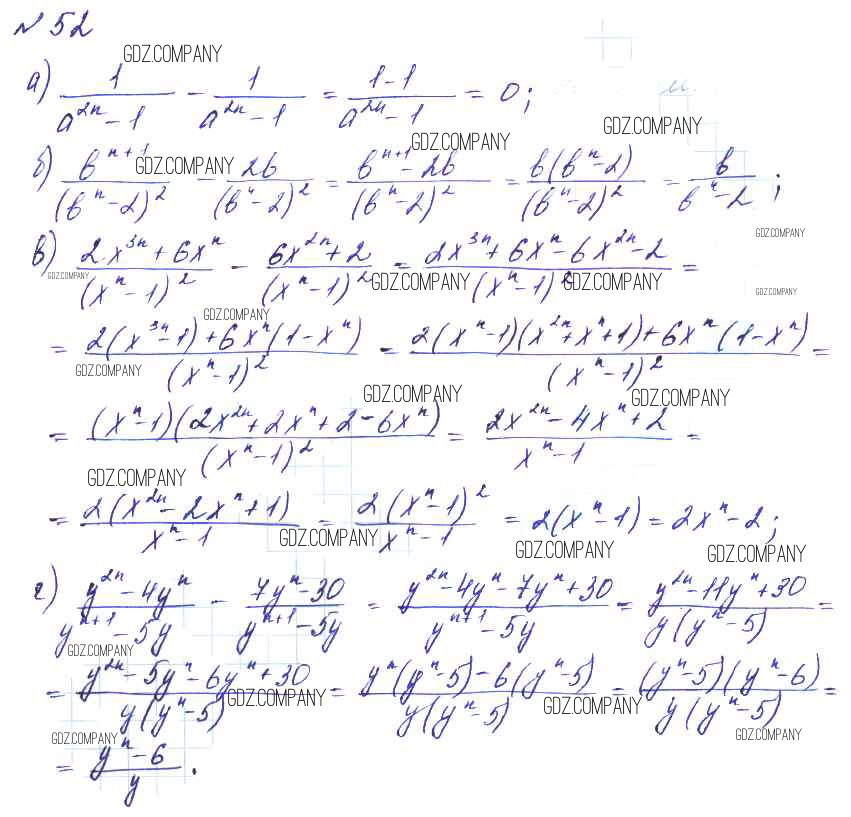 № 52
GDZ.COMPANY
а) 1/(a^{2n} - 1) - 1/(a^{2n} - 1) = (1-1)/(a^{2n} - 1) = 0;
GDZ.COMPANY GDZ.COMPANY
GDZ.COMPANY
б) b^{n+1}/(b^n - 2)^2 - 2b/(b^n - 2)^2 = (b^{n+1} - 2b)/(b^n - 2)^2 = b(b^n - 2)/(b^n - 2)^2 = b/(b^n - 2);
GDZ.COMPANY
в) (2x^{3n} + 6x^n)/(x^n - 1)^2 - (6x^{2n} + 2)/(x^n - 1)^2 = (2x^{3n} + 6x^n - 6x^{2n} - 2)/(x^n - 1)^2 =
GDZ.COMPANY GDZ.COMPANY GDZ.COMPANY GDZ.COMPANY
GDZ.COMPANY
= (2(x^{3n} - 1) + 6x^n(1 - x^n))/(x^n - 1)^2 = (2(x^n - 1)(x^{2n} + x^n + 1) + 6x^n(1 - x^n))/(x^n - 1)^2 =
GDZ.COMPANY
GDZ.COMPANY GDZ.COMPANY
= (x^n - 1)(2x^{2n} + 2x^n + 2 - 6x^n)/(x^n - 1)^2 = (2x^{2n} - 4x^n + 2)/(x^n - 1) =
GDZ.COMPANY
= 2(x^{2n} - 2x^n + 1)/(x^n - 1) = 2(x^n - 1)^2/(x^n - 1) = 2(x^n - 1) = 2x^n - 2;
GDZ.COMPANY GDZ.COMPANY GDZ.COMPANY
г) (y^{2n} - 4y^n)/(y^{n+1} - 5y) - (7y^n - 30)/(y^{n+1} - 5y) = (y^{2n} - 4y^n - 7y^n + 30)/(y^{n+1} - 5y) = (y^{2n} - 11y^n + 30)/(y(y^n - 5)) =
GDZ.COMPANY
= (y^{2n} - 5y^n - 6y^n + 30)/(y(y^n - 5)) = (y^n(y^n - 5) - 6(y^n - 5))/(y(y^n - 5)) = (y^n - 5)(y^n - 6)/(y(y^n - 5)) =
GDZ.COMPANY GDZ.COMPANY
GDZ.COMPANY GDZ.COMPANY
= (y^n - 6)/y.